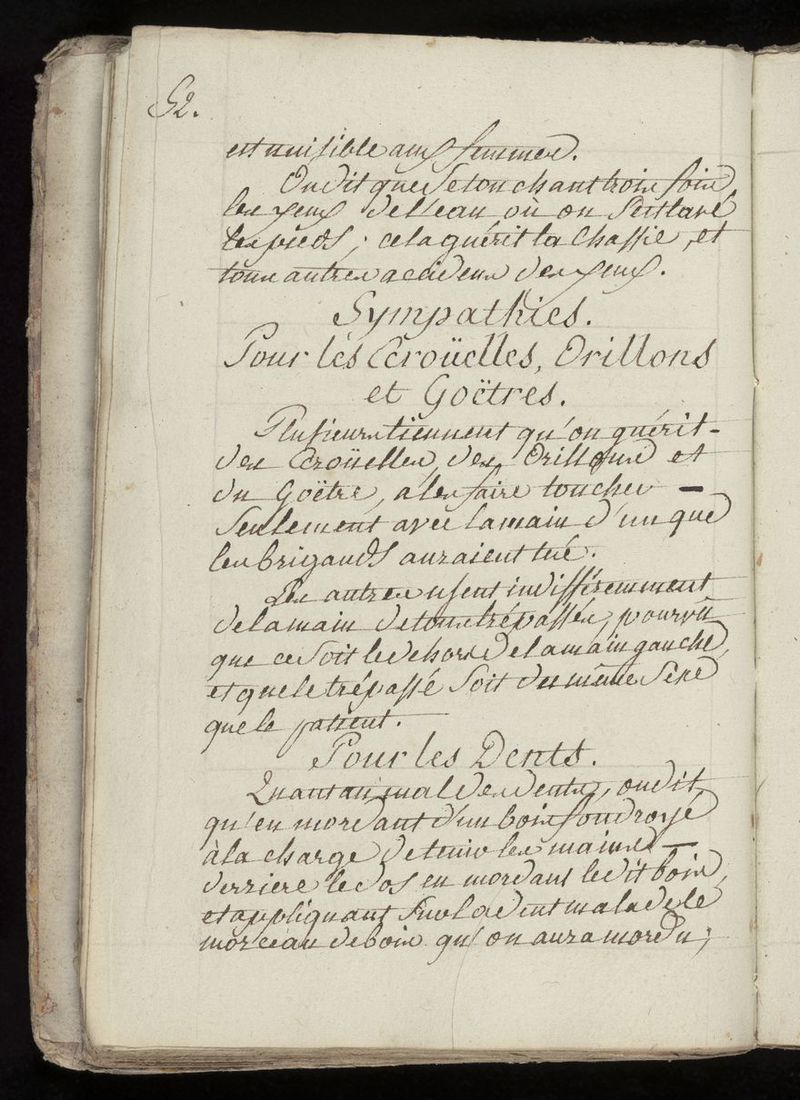 52.
est nuisible aux femmes.
On dit que se touchant trois fois
les yeux de l'eau où on s'est lavé
les pieds; cela guérit la Chassie, et
tous autres accidens des yeux.
Sympathies.
Pour lès Ecroüelles, Orillons
et Goëtres.
Plusieurs tiennent qu'on guérit
des Ecroüelles, des Orillons et
du Goëtre, à les faire toucher
seulement avec la main d'un que
les brigands auraient tué.
Les autres usent indifféremment
de la main de tous trépassés, pourvû
que ce soit le dehors de la main gauche,
et que le trépassé soit du même sexe
que le patient.
Pour les Dents.
Quant au mal des dents, on dit
qu'en mordant d'un bois foudroyé
à la charge de tenir les mains
derriere le dos en mordant le dit bois,
et appliquant sur la dent malade le
morceau de bois qu'on aura mordu;